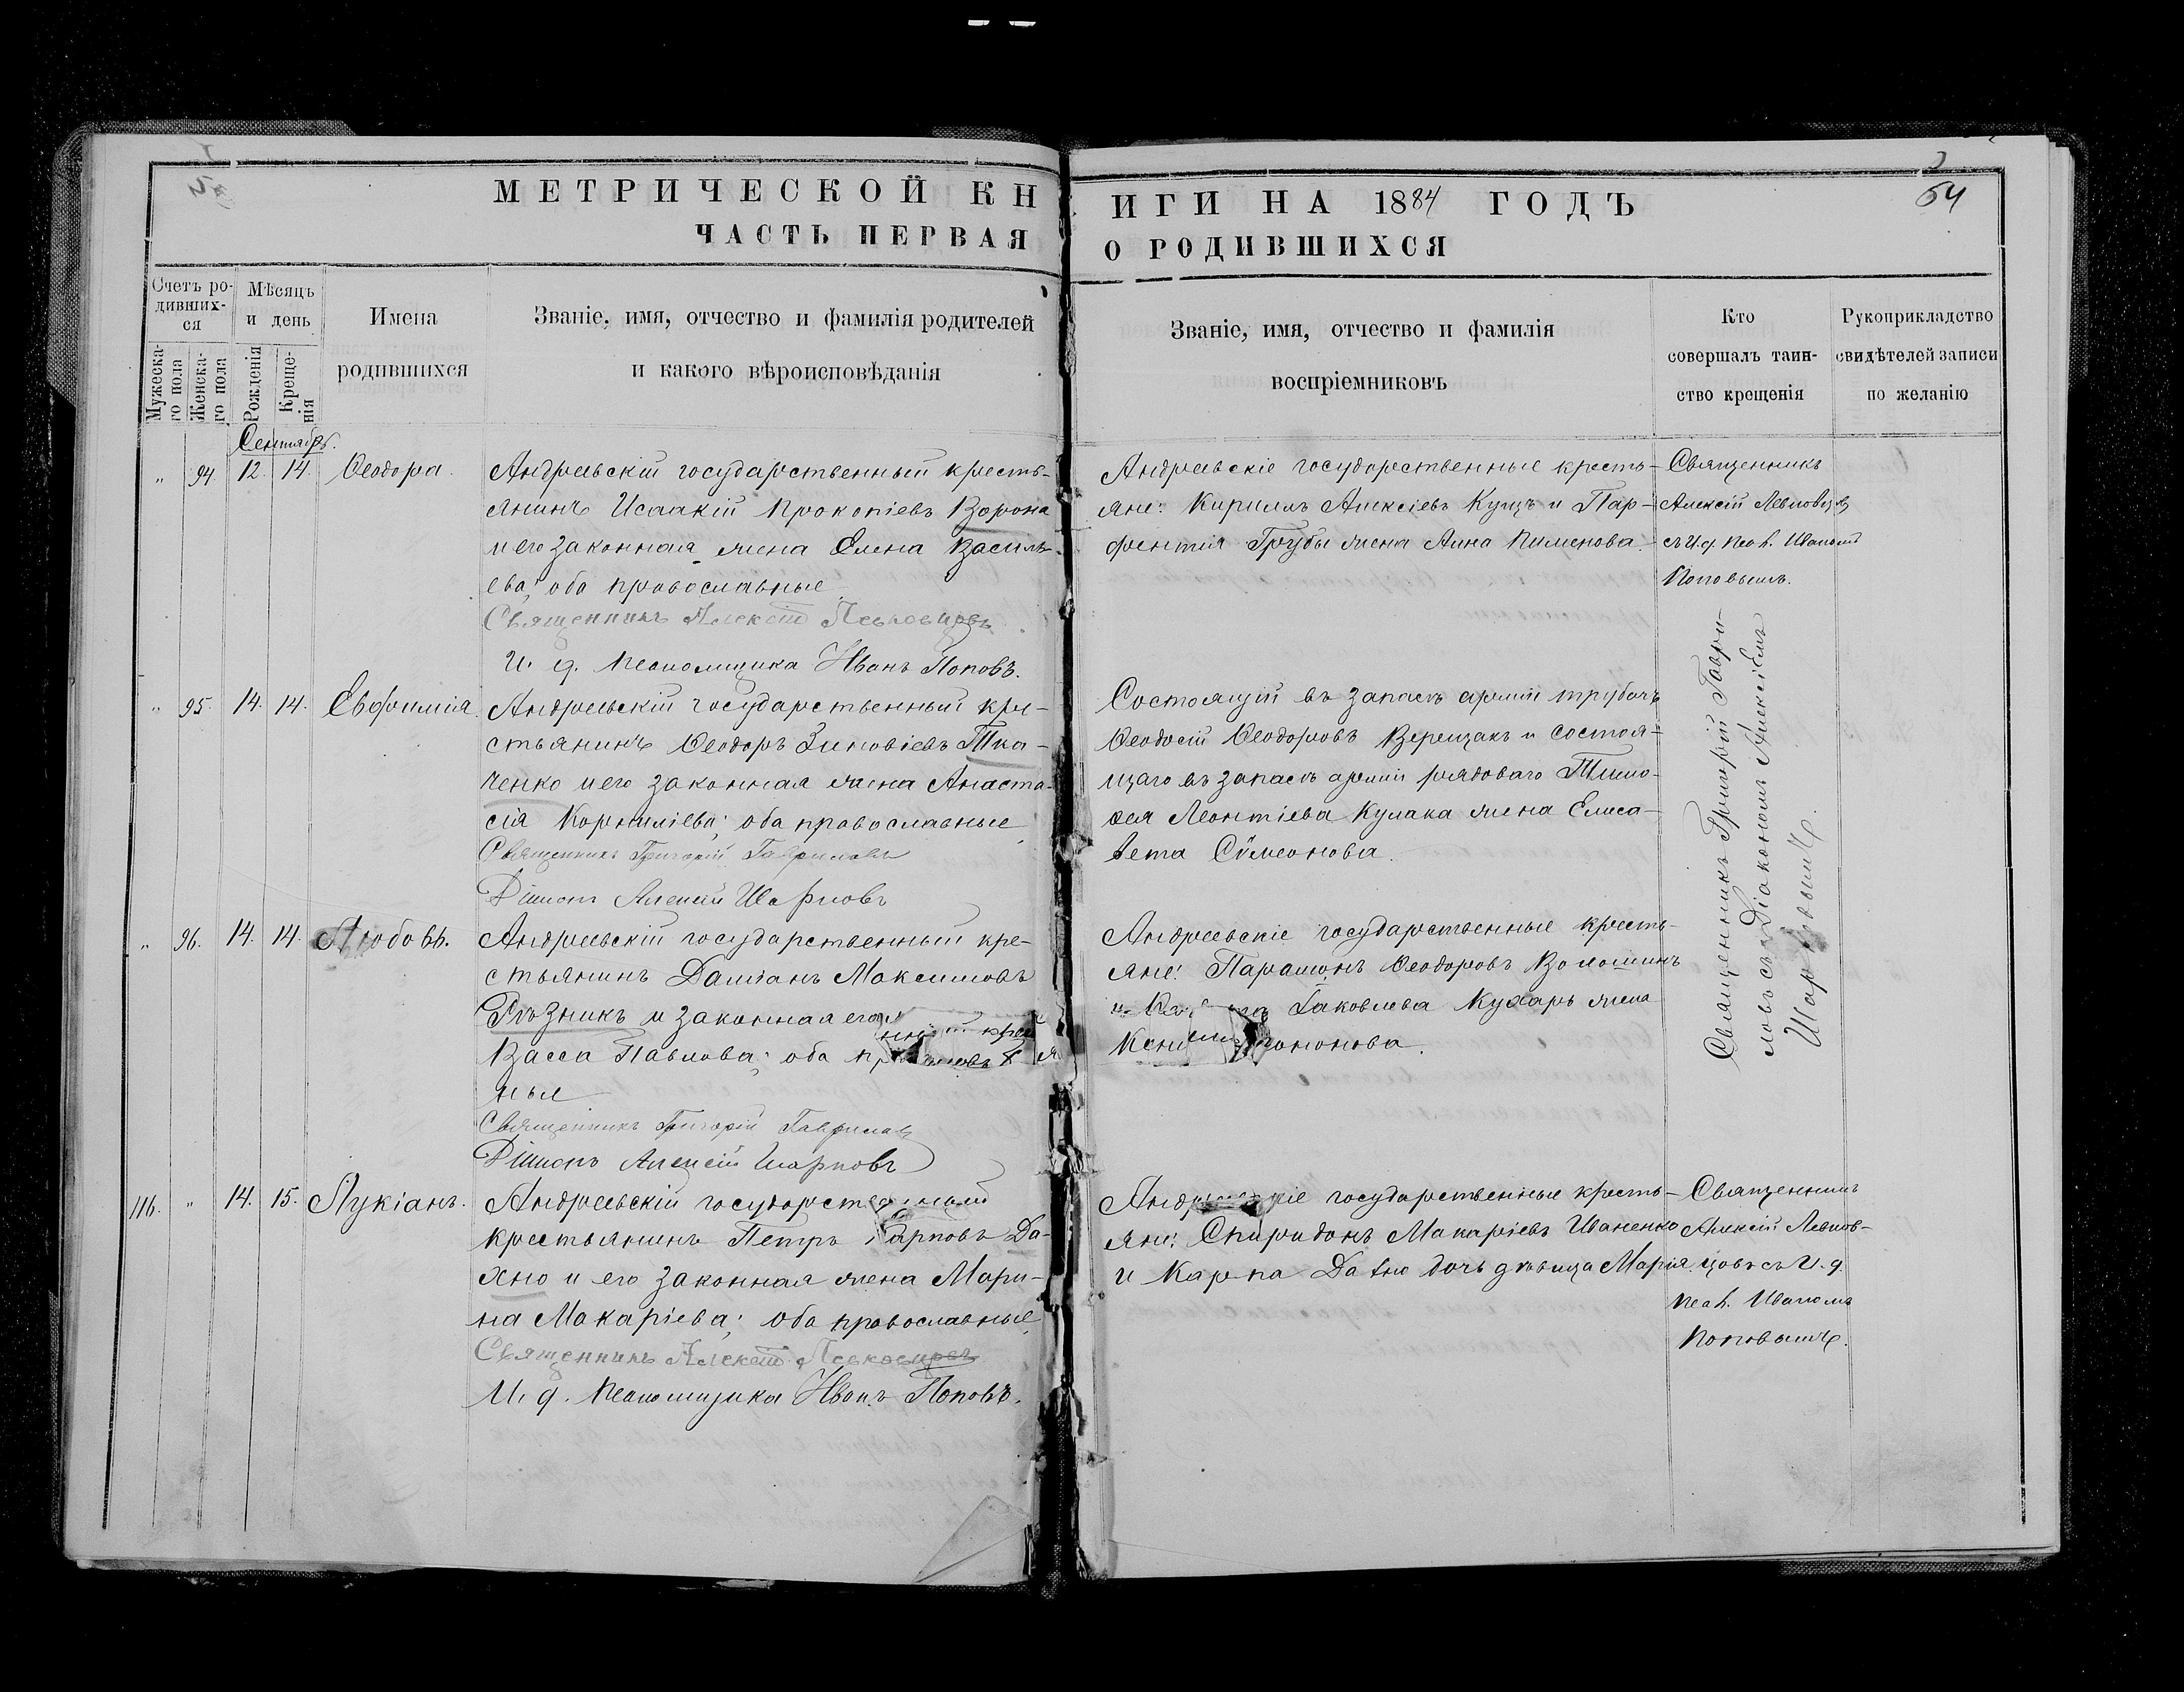 54
МЕТРИЧЕСКОЙ КН
ИГИ НА 1884 ГОДЪ
ЧАСТЬ ПЕРВАЯ
О РОДИВШИХСЯ
Счетъ ро-
дивших-
ся
Мужеска-
го пола
Женска-
го пола
Мѣсяцъ
и день
Рожденія
Креще-
нія
Имена
родившихся
Званіе, имя, отчество и фамилія родителей
и какого вѣроисповѣданія
Званіе, имя, отчество и фамилія
воспріемниковъ
Кто
совершалъ таин-
ство крещенія
Рукоприкладство
свидѣтелей записи
по желанію
Сентябрь.
„ 94. 12. 14. Ѳеодора.
Андреевскій государственный кресть-
янинъ Исаакій Прокопіевъ Ворона
и его законная жена Елена Василь-
ева; оба православные.
Священникъ Алексій
И. д. псаломщика Иванъ Поповъ.
Андреевскіе государственные кресть-
яне: Кириллъ Алексіевъ Куцъ и Пар-
фентія Грубы жена Анна Пименова.
Священникъ
Алексій
съ И. д. псал. Иваномъ
Поповымъ.
„ 95. 14. 14. Евфимія.
Андреевскій государственный кре-
стьянинъ Ѳеодоръ Зиновіевъ Тка-
ченко и его законная жена Анаста-
сія Корниліева; оба православные
Священникъ Григорій Гавриловъ
Діаконъ Алексій Шарповъ
Состоящій въ запасѣ арміи трубачъ
Ѳеодосій Ѳеодоровъ Верещакъ и состоя-
щаго въ запасѣ арміи рядоваго Тимо-
ѳея Леонтіева Кулака жена Елиса-
вета Сѵмеонова.
Священникъ Григорій Гаври-
ловъ съ Діакономъ Алексіемъ
Шарповымъ.
„ 96. 14. 14. Любовь.
Андреевскій государственный кре-
стьянинъ Даміанъ Максимовъ
Рѣзникъ и законная его
Васса Павлова; оба
ные
Священникъ Григорій Гавриловъ
Діаконъ Алексій Шарповъ
Андреевскіе государственные кресть-
яне: Парамонъ Ѳеодоровъ Волошинъ
и Іаковлева Кухаръ жена
116. „ 14. 15. Лукіанъ.
Андреевскій государственный
крестьянинъ Петръ Карповъ Да-
хно и его законная жена Мари-
на Макаріева; оба православные
Священникъ Алексій
И. д. псаломщика Иванъ Поповъ.
Андреевскіе государственные кресть-
яне: Спиридонъ Макаріевъ Иваненко
и Карпа Дахно дочь дѣвица Марія.
Священникъ
Алексій
съ И. д.
псал. Иваномъ
Поповымъ.